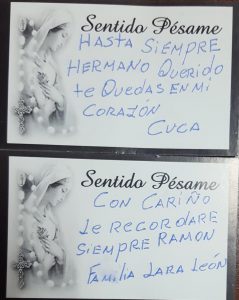 Sentido Pésame
HASTA SIEMPRE
HERMANO QUERIDO
te QUEDAS EN MI
CORAZÓN
CUCA
Sentido Pésame
CON CARIÑO
Le RECORDARE
SIEMPRE RAMON
FAMILIA LARA LEÓN